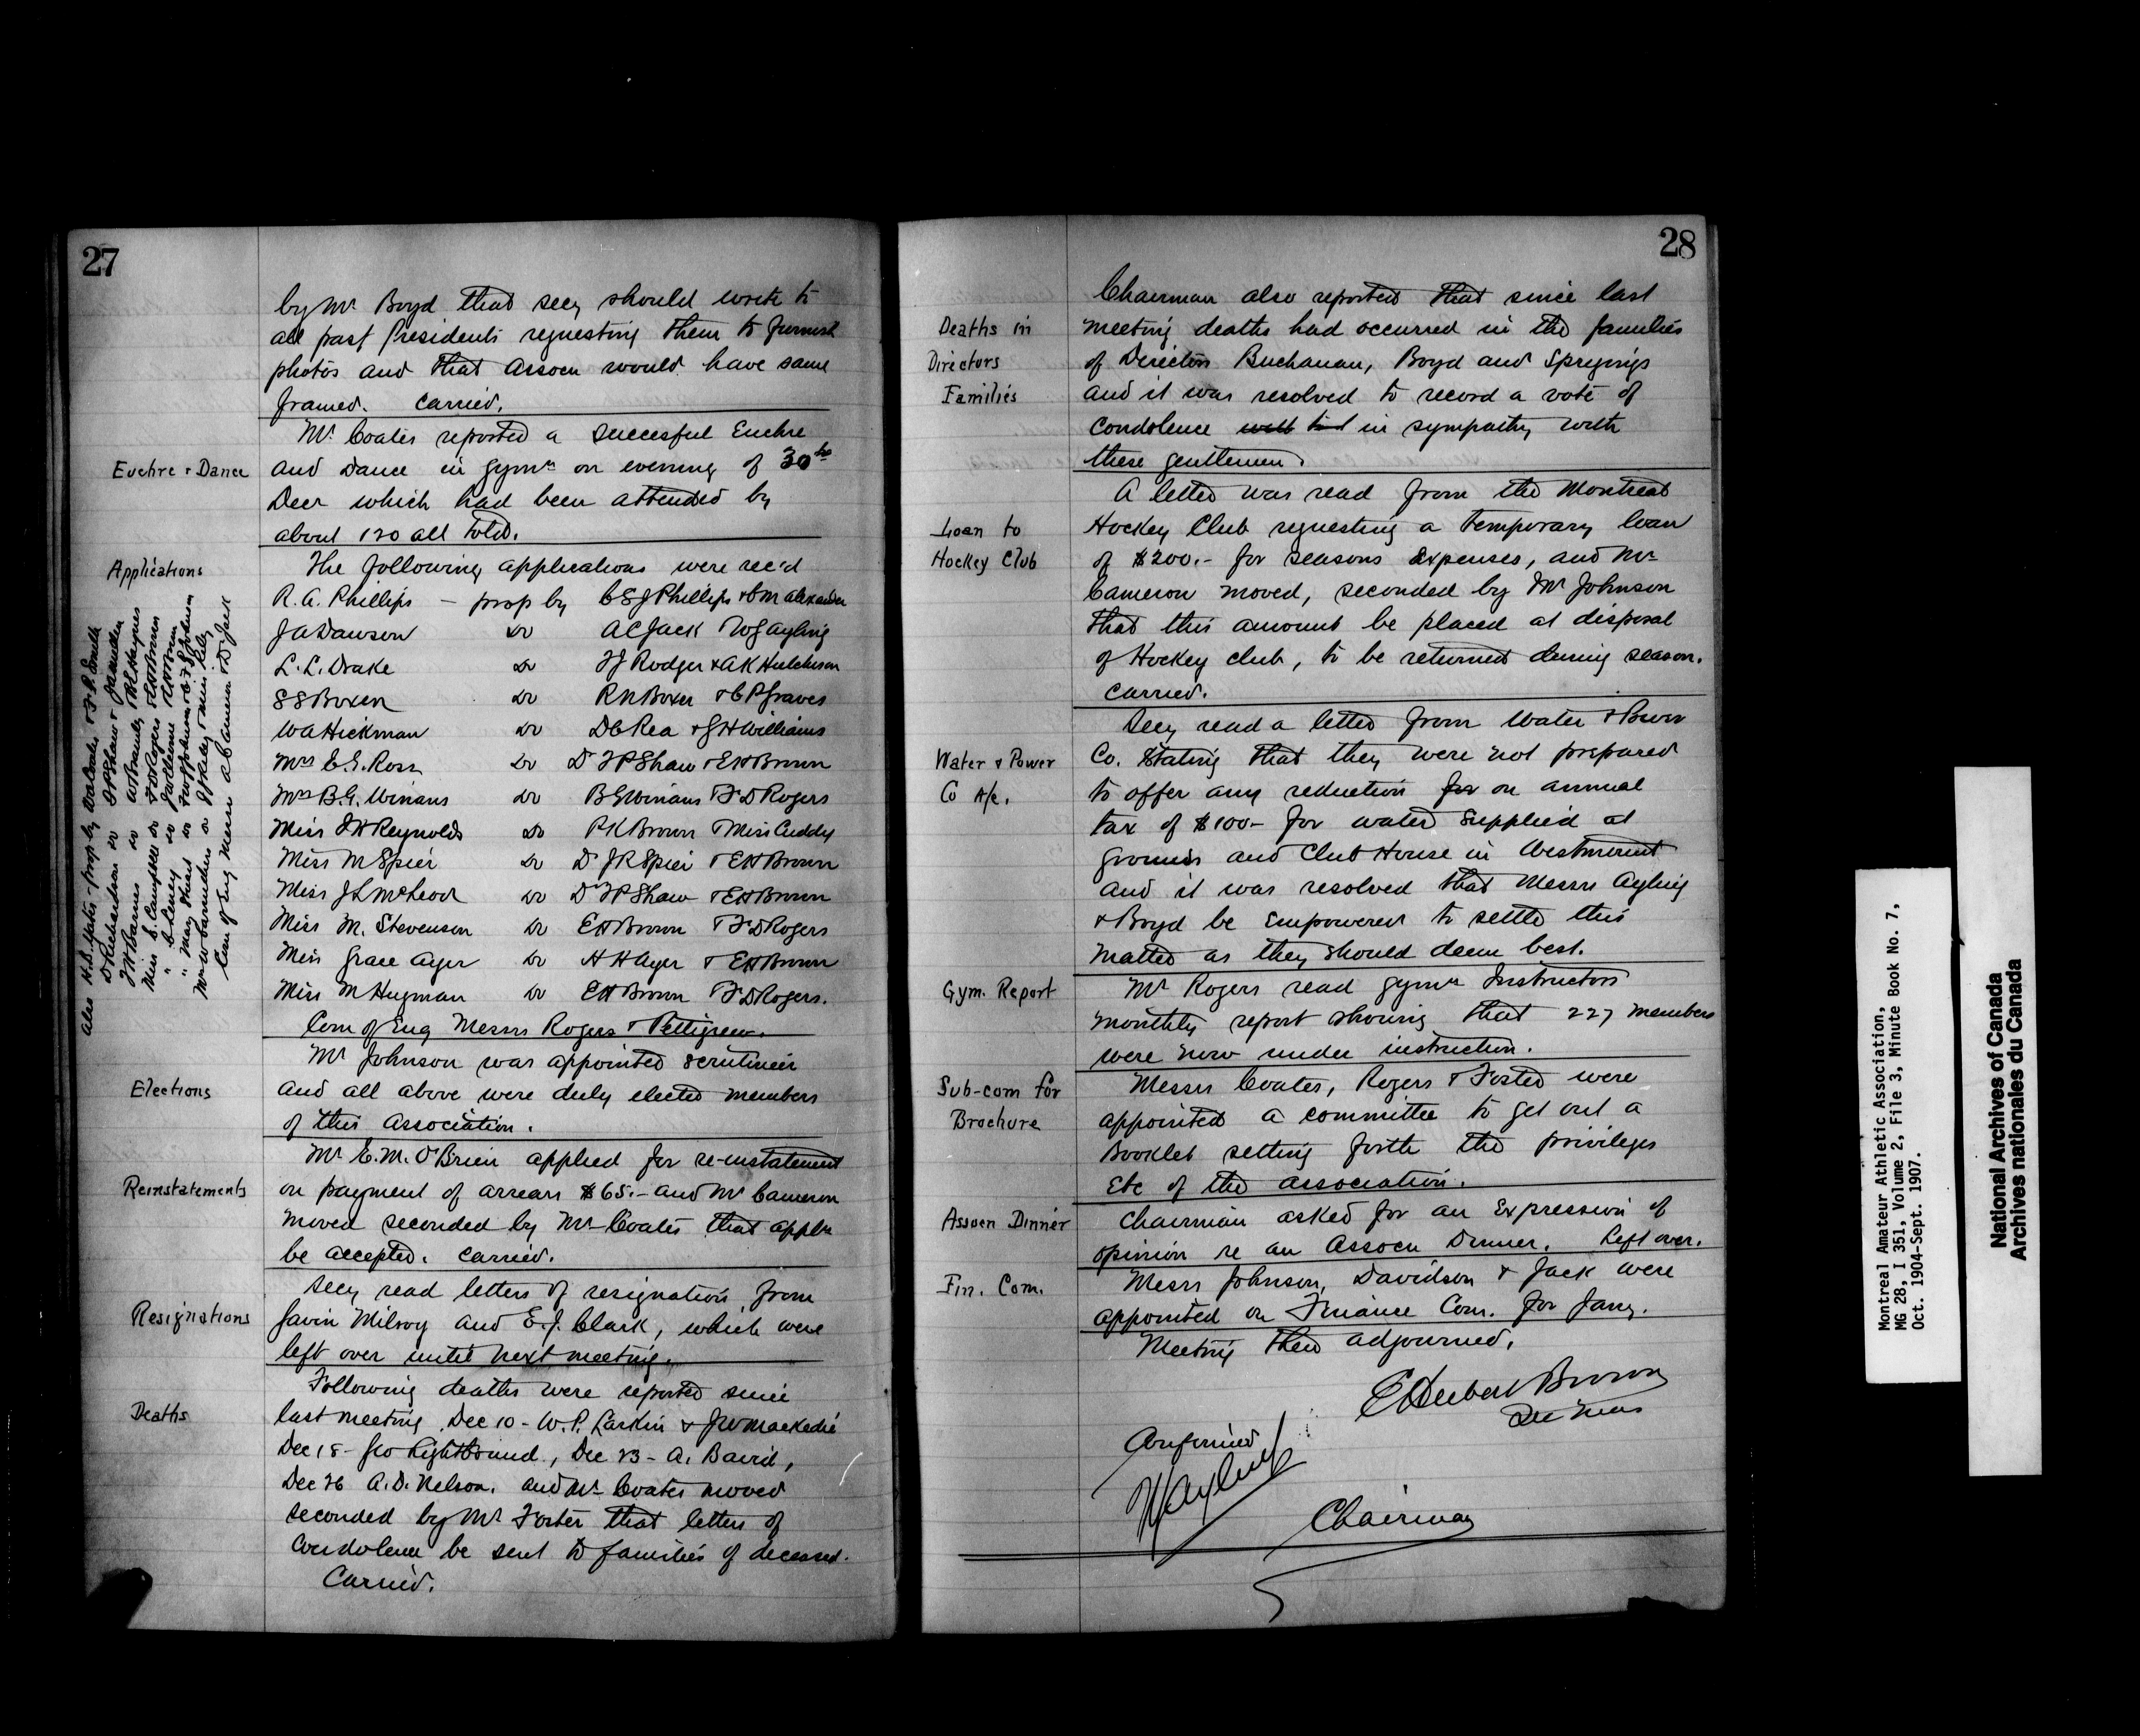 27
by Mr Boyd that secy should write to
all past Presidents requesting them to furnish
photos and that Assocn would have same
framed. Carried.
Mr Coates reported a succesful Euchre
Euchre & Dance
and Dance in gymn on evening of 30th
Decr which had been attended by
about 120 all told.
Applications
The following applications were rec'd
R. A. Phillips – prop by C S J Phillips & C M Alexander
J A Dawson Do A C Jack W G Ayling
L. L. Drake Do T J Rodger & A K Hutcheson
S S Boxer Do R N Boxer & C P Graves
W A Hickman Do D C Rea & G H Williams
Mrs C. E. Ross Do Dr F P Shaw & E H Brown
Mrs B. G. Winans Do B G Winans F D Rogers
Miss J H Reynolds Do P K Brown & Miss Cuddy
Miss M Spier Do Dr J R Spier & E H Brown
Miss J L McLeod Do Dr F P Shaw & E H Brown
Miss M. Stevenson Do E H Brown F D Rogers
Miss Grace Ayer Do H H Ayer & E H Brown
Miss M Hugman Do E H Brown F D Rogers.
Com of Enq Messrs Rogers & Pettigrew.
Also H. S. Yates – prop by
D Richardson Do F P Shaw &
J W Barnes Do
Miss E. Campbell Do F D Rogers & E H Brown
" C Lensey Do E H Brown
" May Hurst Do
Com of Enq Messrs A C Cameron & D Jack
Mr Johnson was appointed scrutineer
Elections
and all above were duly elected members
of this Association.
Mr E. M. O'Brien applied for re-instatement
Reinstatements
on payment of arrears $65.– and Mr Cameron
moved seconded by Mr Coates that appln
be accepted. Carried.
Secy read letters of resignation from
Resignations
Gavin Milroy and E. J. Clark, which were
left over until next meeting.
Following deaths were reported since
Deaths
last meeting Dec 10 – W. P. Larkin & J W Mackedie
Dec 18 – Geo Lightbound, Dec 23 – A. Baird,
Dec 26 A. D. Nelson. and Mr Coates moved
seconded by Mr Foster that letters of
Condolence be sent to families of deceased.
Carried.
28
Chairman also reported that since last
Deaths in
meeting deaths had occurred in the families
Directors
of Directors Buchanan, Boyd and Spryings
Families
and it was resolved to record a vote of
condolence in sympathy with
these gentlemen.
A letter was read from the Montreal
Loan to
Hockey Club requesting a temporary loan
Hockey Club
of $200.– for seasons Expenses, and Mr
Cameron moved, seconded by Mr Johnson
that this amount be placed at disposal
of Hockey club, to be returned during season.
Carried.
Secy read a letter from Water & Power
Water & Power
Co. Stating that they were not prepared
Co A/c.
to offer any reduction for on annual
tax of $100– for water supplied at
grounds and Club House in Westmount
and it was resolved that Messrs Ayling
& Boyd be empowered to settle this
matter as they should deem best.
Gym. Report
Mr Rogers read gymn Instructors
monthly report showing that 227 members
were now under instruction.
Sub-com for
Messrs Coates, Rogers & Foster were
Brochure
appointed a committee to get out a
Booklet setting forth the privileges
Etc of the association.
Assocn Dinner
Chairman asked for an Expression of
opinion re an Assocn Dinner. Left over.
Fin. Com.
Messrs Johnson, Davidson & Jack were
appointed on Finance Com. for Jany.
Meeting then adjourned.
E Herbert Brown
Sec Treas
Confirmed
W G Ayling
Chairman
Montreal Amateur Athletic Association,
MG 28, I 351, Volume 2, File 3, Minute Book No. 7,
Oct. 1904-Sept. 1907.
National Archives of Canada
Archives nationales du Canada